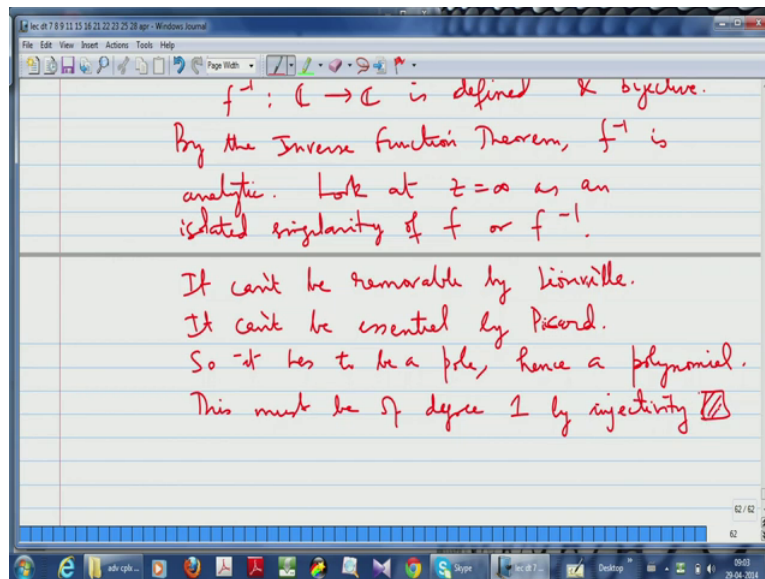 lec dt 7 8 9 11 15 16 21 22 23 25 28 apr - Windows Journal
File Edit View Insert Actions Tools Help
Page Width
f⁻¹ : ℂ → ℂ is defined & bijective.
By the Inverse Function Theorem, f⁻¹ is
analytic. Look at z = ∞ as an
isolated singularity of f or f⁻¹.
It can't be removable by Liouville.
It can't be essential by Picard.
So it has to be a pole, hence a polynomial.
This must be of degree 1 by injectivity
62 / 62
62
adv cplx ...
Skype
lec dt 7 ...
Desktop
09:03
29-04-2014